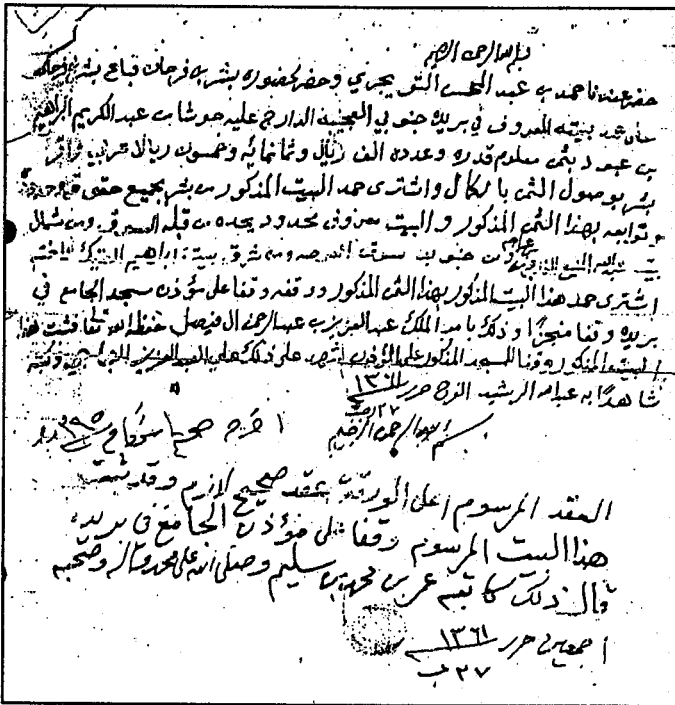 بسم الله الرحمن الرحيم
حضر عندنا حمد بن عبد المحسن التويجري وحضر لحضوره بشر بن فرحان فباع بشر
حمد بيته المعروف في بريدة جنوبي العجيبة الدارج عليه من عبد الكريم
بن عبود بثمن معلوم قدره وعدده ألف ريال وثمانمائة وخمسون ريالا عربي وأقر
بشر بوصول الثمن بالكمال واشترى حمد البيت المذكور من بشر بجميع حقوقه وحدوده
وتوابعه بهذا الثمن المذكور والبيت معروف بحدود يحده من قبلة السوق ومن شمال
بيت عبد الله ومن جنوب سوق ومن شرق بيت إبراهيم
اشترى حمد هذا البيت المذكور بهذا الثمن المذكور ووقفه وقفا على مؤذن مسجد الجامع في
بريدة وقفا منجزا وذلك بأمر الملك عبد العزيز بن عبد الرحمن ال فيصل حفظه الله تعالى فثبت هذا
البيت المذكور وقفا للمسجد المذكور على المؤذن شهد على ذلك وكتبه
شاهدا به عبد الله الرشيد الفرج حرر ١٣٦١
٢٧
بسم الله الرحمن الرحيم
العقد المرسوم أعلى الورقة عقد صحيح لازم وقد ثبت
هذا البيت المرسوم وقفا على مؤذن الجامع في بريدة
قال ذلك كاتبه عمر بن محمد بن سليم وصلى الله على محمد وآله وصحبه
أجمعين حرر ١٣٦١
٢٧